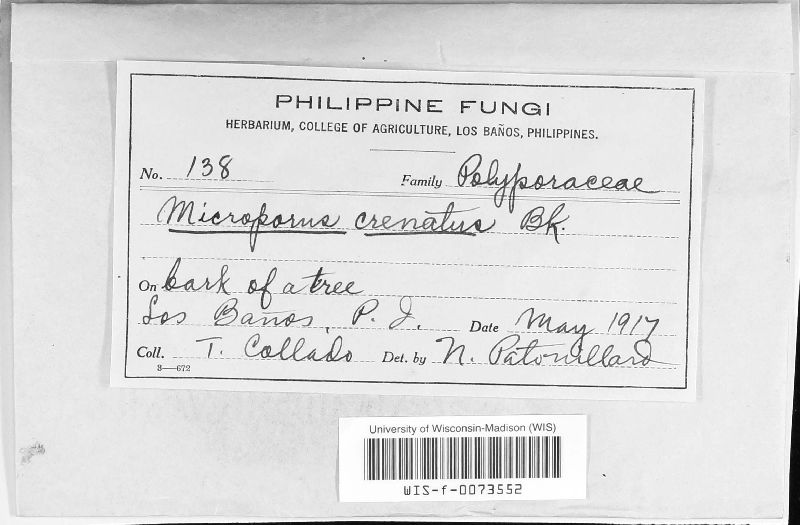 PHILIPPINE FUNGI
HERBARIUM, COLLEGE OF AGRICULTURE, LOS BAÑOS, PHILIPPINES.
No. 138 Family Polyporaceae
Microporus crenatus Bk.
On bark of a tree
Los Baños, P. I. Date May 1917
Coll. T. Collado Det. by N. Patouillard
8—672
University of Wisconsin-Madison (WIS)
WIS-f-0073552